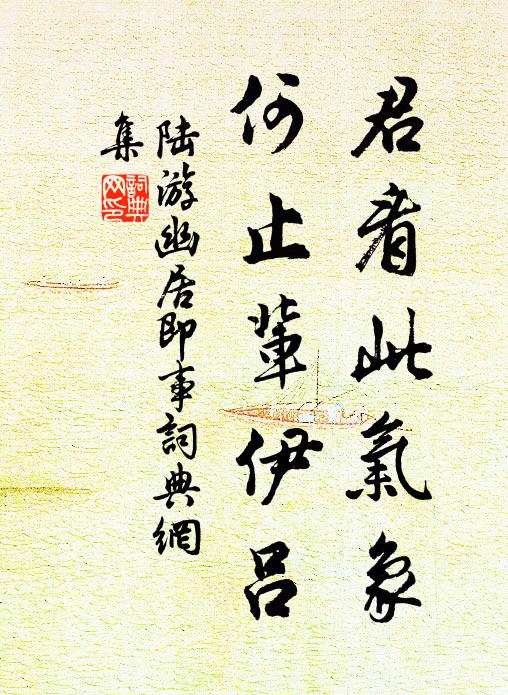 君看此氣象
何止輩伊呂
陸游幽居即事詞典網
集
詞典
网印